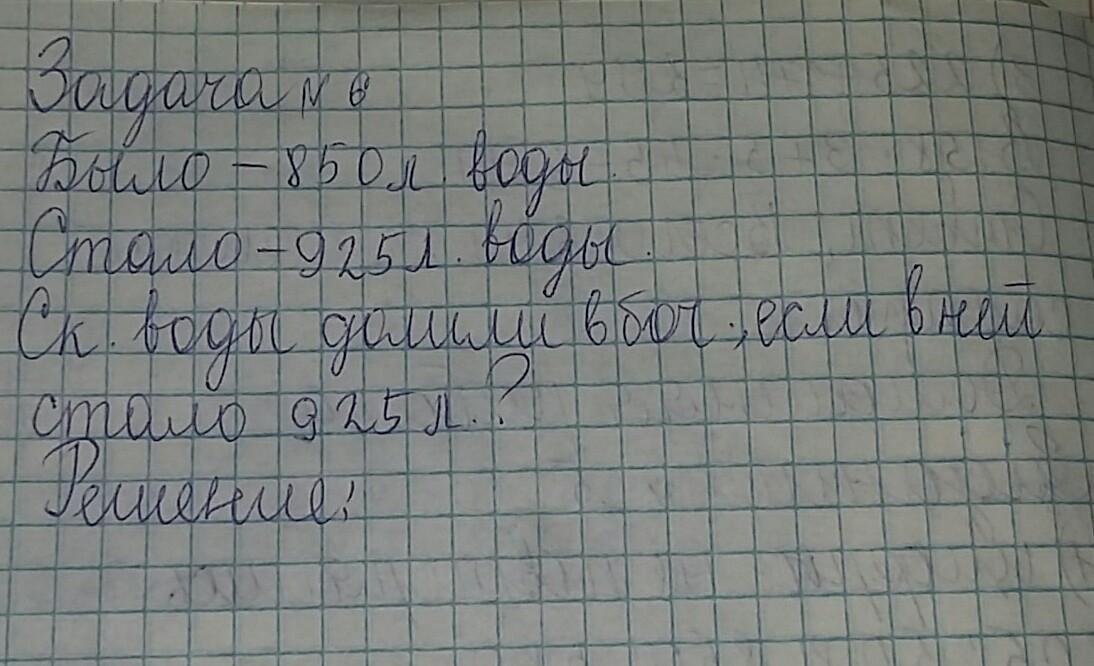 Задача № 6
Было - 850 л. воды.
Стало - 925 л. воды.
Ск. воды долили в боч., если в ней
стало 925 л.?
Решение: